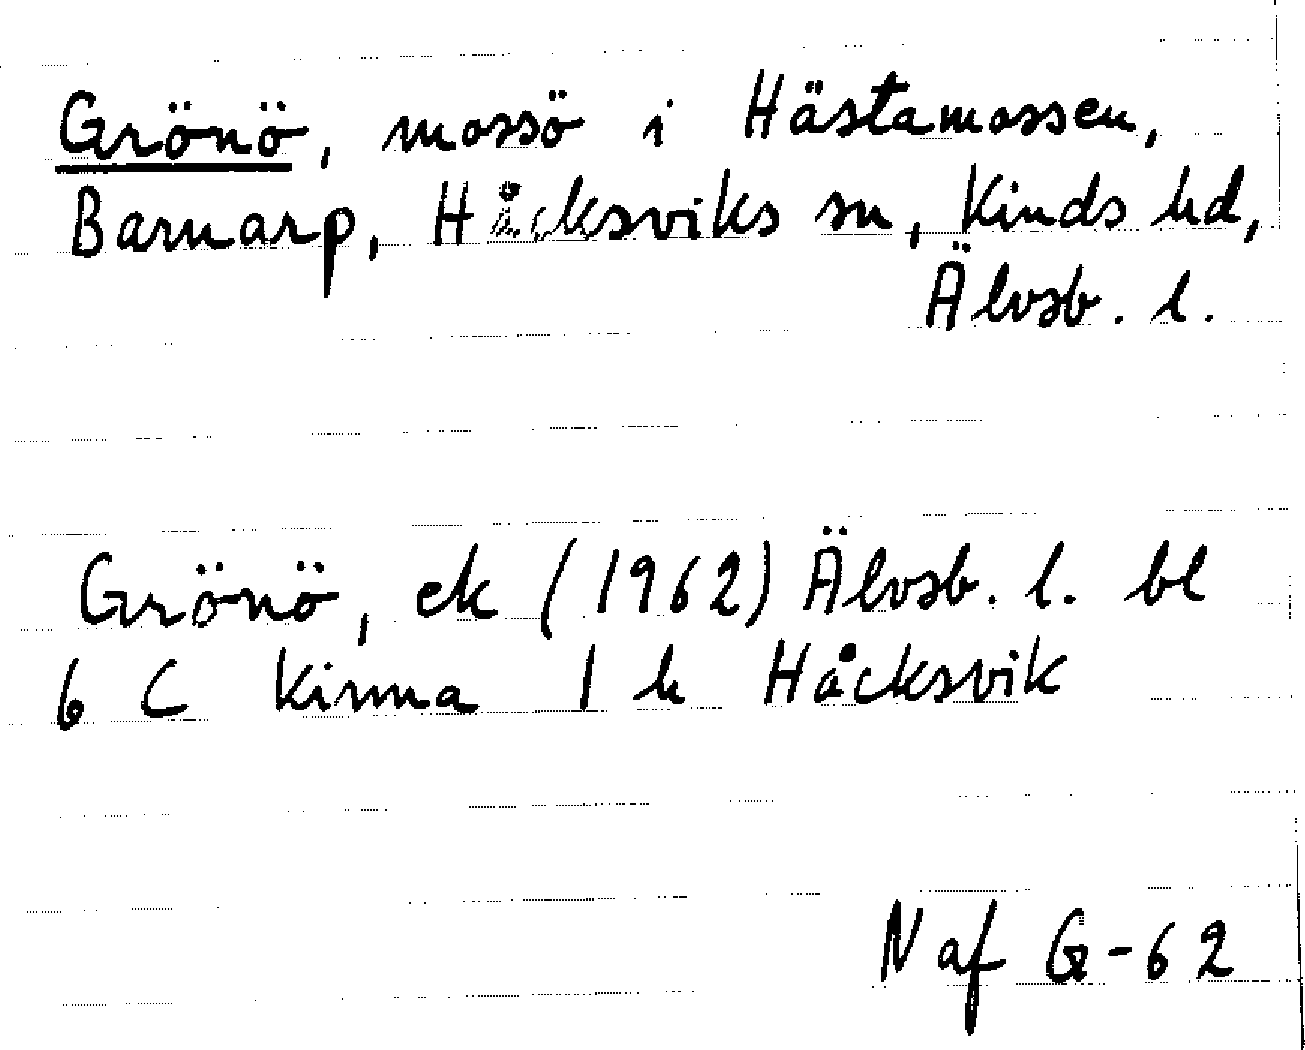 Grönö, mossö i Hästamossen,
Barnarp, Håcksviks sn, Kinds hd,
Älvsb. l.
Grönö, ek (1962) Älvsb. l. bl
6 C Kinna 1 h Håcksvik
N af G-62